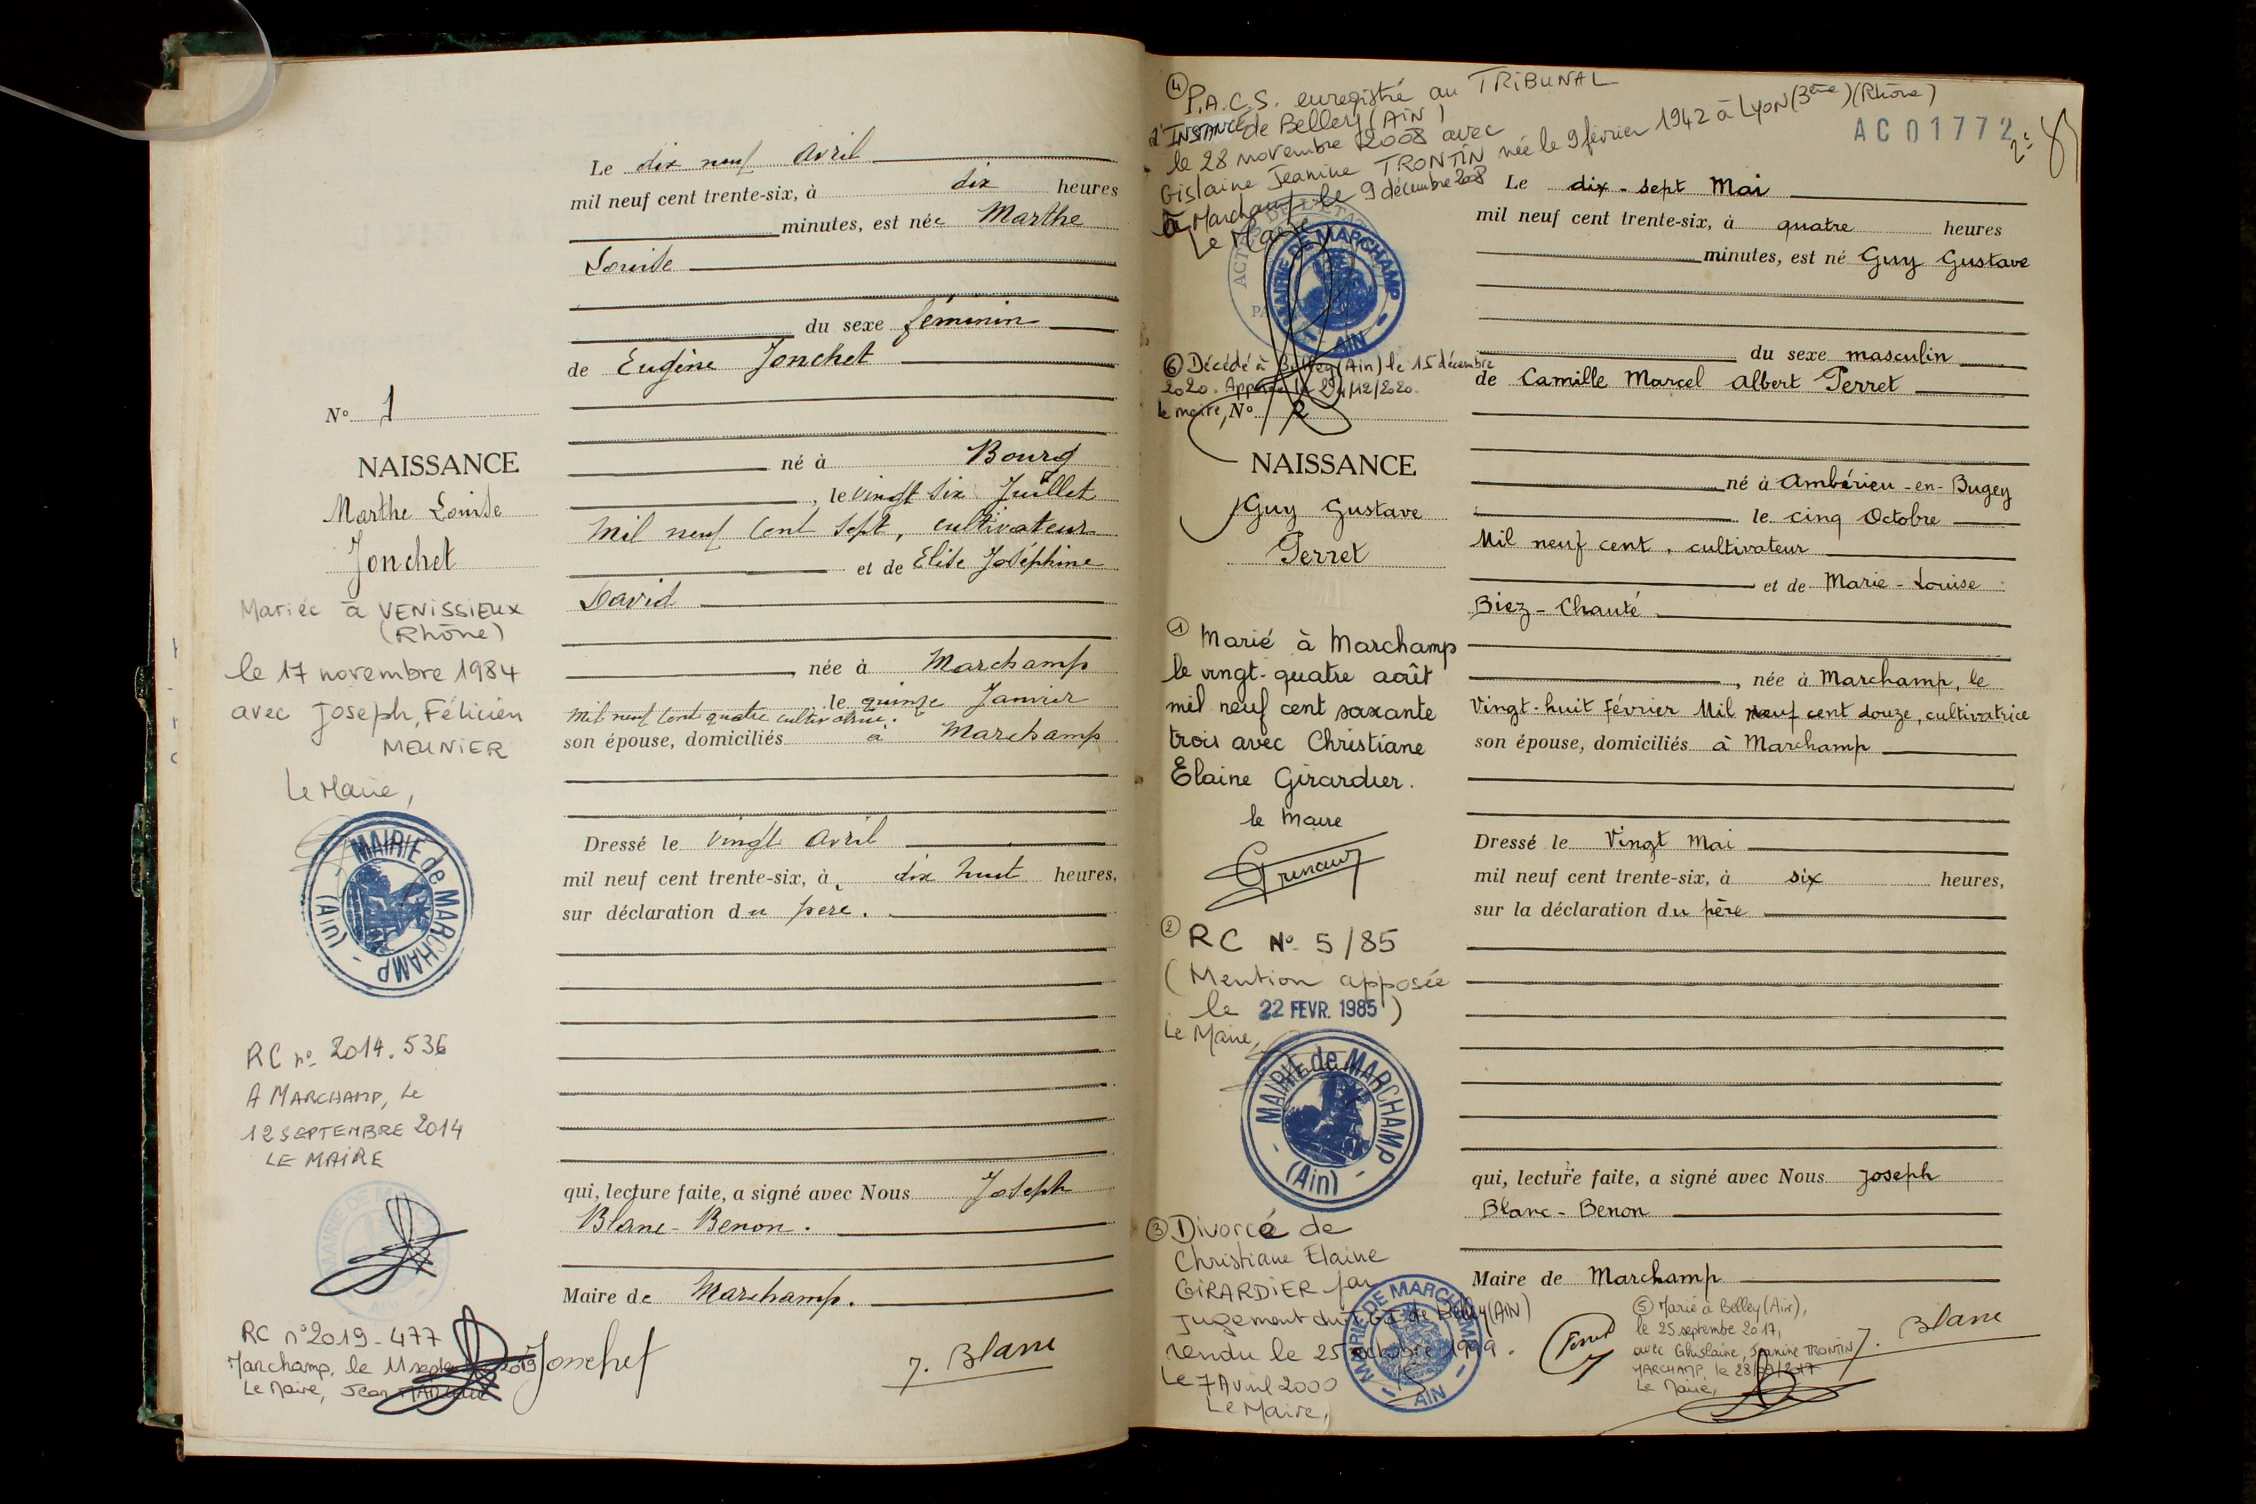 Le dix neuf Avril
mil neuf cent trente-six, à dix heures
minutes, est née Marthe
Louise
du sexe féminin
de Eugène Jonchet
né à Bourg
, le vingt six Juillet
Mil neuf Cent Sept, cultivateur
et de Elise Joséphine
David
née à Marchamp
le quinze Janvier
Mil neuf Cent quatre cultivatrice.
son épouse, domiciliés à Marchamp
Dressé le vingt Avril
mil neuf cent trente-six, à dix huit heures,
sur déclaration du père.
qui, lecture faite, a signé avec Nous Joseph
Blanc-Benon.
Maire de Marchamp.
Jonchet
J. Blanc
No 1
NAISSANCE
Marthe Louise
Jonchet
Mariée à VENISSIEUX
(Rhône)
le 17 novembre 1984
avec Joseph, Félicien
MEUNIER
Le Maire,
MAIRIE de MARCHAMP
(Ain)
RC no 2014.536
A MARCHAMP, Le
12 SEPTEMBRE 2014
LE MAIRE
RC n° 2019-477
Marchamp, le 11 2019
Le Maire, Jean
④ P.A.C.S. enregistré au TRIBUNAL
d'INSTANCE de Belley (AIN)
le 28 novembre 2008 avec
Gislaine Jeanine TRONTIN née le 9 février 1942 à LYON (3ème) (Rhône)
à Marchamp le 9 décembre 2008
Le Maire
MAIRIE DE MARCHAMP
- AIN -
⑥ Décédé à Belley (Ain) le 15 décembre
2020. Apposée le 24/12/2020.
le maire,
AC01772
No 2
NAISSANCE
Guy Gustave
Perret
① Marié à Marchamp
le vingt-quatre août
mil neuf cent soixante
trois avec Christiane
Elaine Girardier.
le Maire
② RC No 5/85
(Mention apposée
le 22 FEVR. 1985)
Le Maire,
MAIRIE de MARCHAMP
- (Ain) -
③ Divorcé de
Christiane Elaine
GIRARDIER par
jugement du TGI de Belley (AIN)
rendu le 25 octobre 1999.
Le 7 Avril 2000
Le Maire,
MAIRIE DE MARCHAMP
- AIN -
Le dix-sept Mai
mil neuf cent trente-six, à quatre heures
minutes, est né Guy Gustave
du sexe masculin
de Camille Marcel Albert Perret
né à Ambérieu-en-Bugey
le cinq Octobre
Mil neuf cent, cultivateur
et de Marie-Louise
Biez-Chauté
, née à Marchamp, le
Vingt-huit Février Mil neuf cent douze, cultivatrice
son épouse, domiciliés à Marchamp
Dressé le Vingt Mai
mil neuf cent trente-six, à six heures,
sur la déclaration du père
qui, lecture faite, a signé avec Nous Joseph
Blanc-Benon
Maire de Marchamp
⑤ Marié à Belley (Ain),
le 25 septembre 2017,
avec Ghislaine, Jeanine TRONTIN
MARCHAMP, le 28/09/2017
Le Maire,
J. Blanc